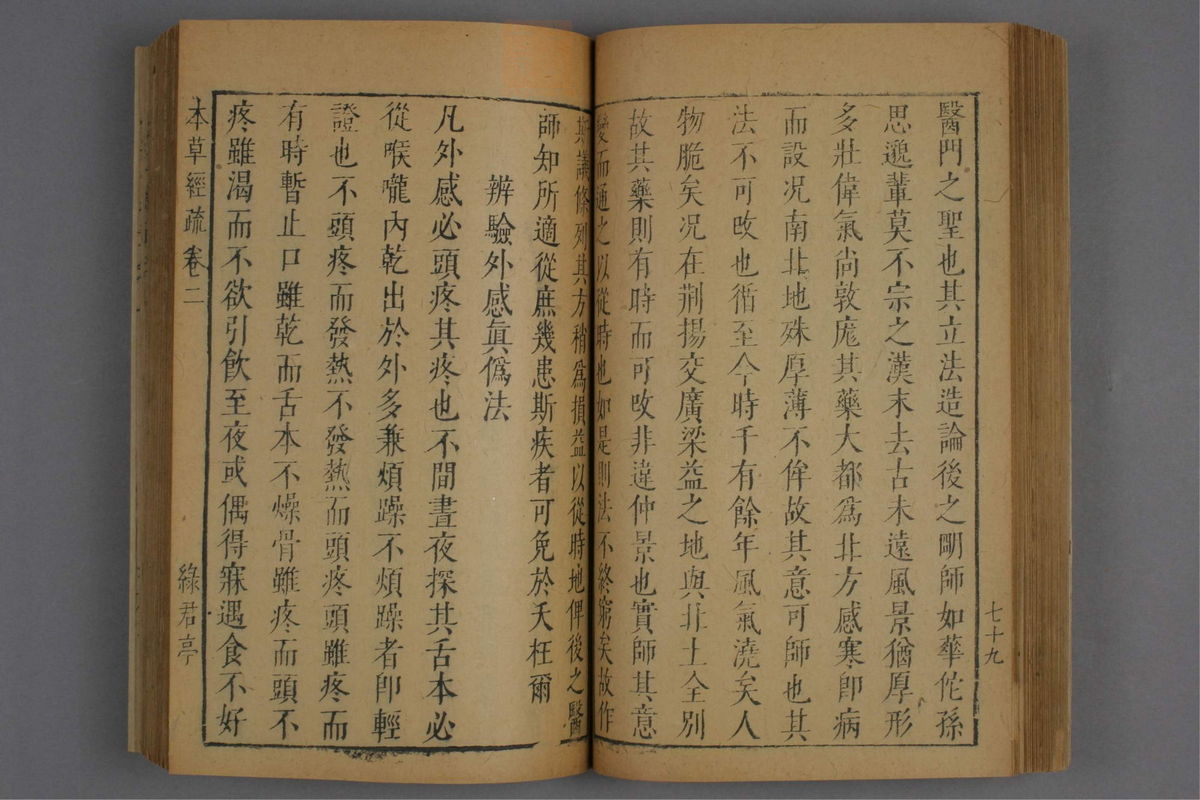 醫門之聖也其立法造論後之明師如華佗孫
思邈輩莫不宗之漢末去古未遠風景猶厚形
多壯偉氣尚敦庬其藥大都爲北方感寒卽病
而設况南北地殊厚薄不侔故其意可師也其
法不可改也循至今時千有餘年風氣澆矣人
物脆矣况在荆揚交廣梁益之地與北土全別
故其藥則有時而可改非違仲景也實師其意
變而通之以從時也如是則法不終窮矣故作
斯議條列其方稍爲損益以從時地俾後之醫
師知所適從庶幾患斯疾者可免於夭枉爾
辨驗外感眞僞法
凡外感必頭疼其疼也不間晝夜探其舌本必
從喉嚨內乾出於外多兼煩躁不煩躁者卽輕
證也不頭疼而發熱不發熱而頭疼頭雖疼而
有時暫止口雖乾而舌本不燥骨雖疼而頭不
疼雖渴而不欲引飲至夜或偶得寐遇食不好
七十九
本草經疏 卷二
綠君亭